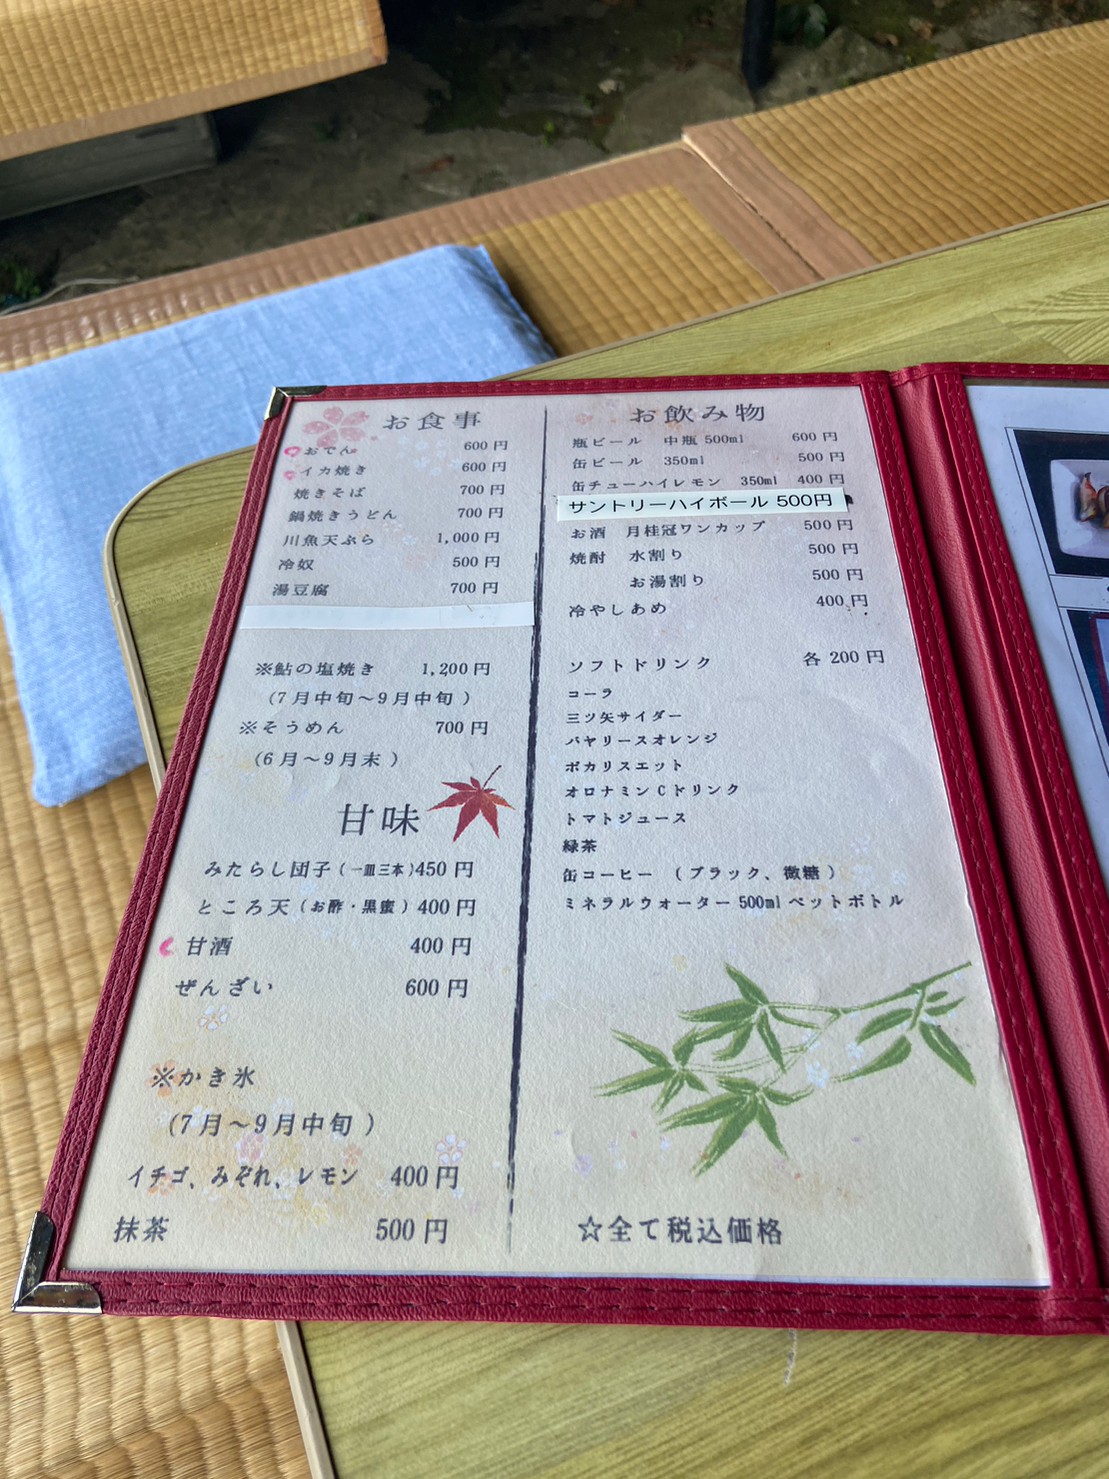 お食事
おでん 600円
イカ焼き 600円
焼きそば 700円
鍋焼きうどん 700円
川魚天ぷら 1,000円
冷奴 500円
湯豆腐 700円
※鮎の塩焼き 1,200円
(7月中旬～9月中旬)
※そうめん 700円
(6月～9月末)
甘味
みたらし団子(一皿三本)450円
ところ天(お酢・黒蜜)400円
甘酒 400円
ぜんざい 600円
※かき氷
(7月～9月中旬)
イチゴ、みぞれ、レモン 400円
抹茶 500円
お飲み物
瓶ビール 中瓶500ml 600円
缶ビール 350ml 500円
缶チューハイレモン 350ml 400円
サントリーハイボール 500円
お酒 月桂冠ワンカップ 500円
焼酎 水割り 500円
お湯割り 500円
冷やしあめ 400円
ソフトドリンク 各200円
コーラ
三ツ矢サイダー
バヤリースオレンジ
ポカリスエット
オロナミンCドリンク
トマトジュース
緑茶
缶コーヒー (ブラック、微糖)
ミネラルウォーター500mlペットボトル
☆全て税込価格